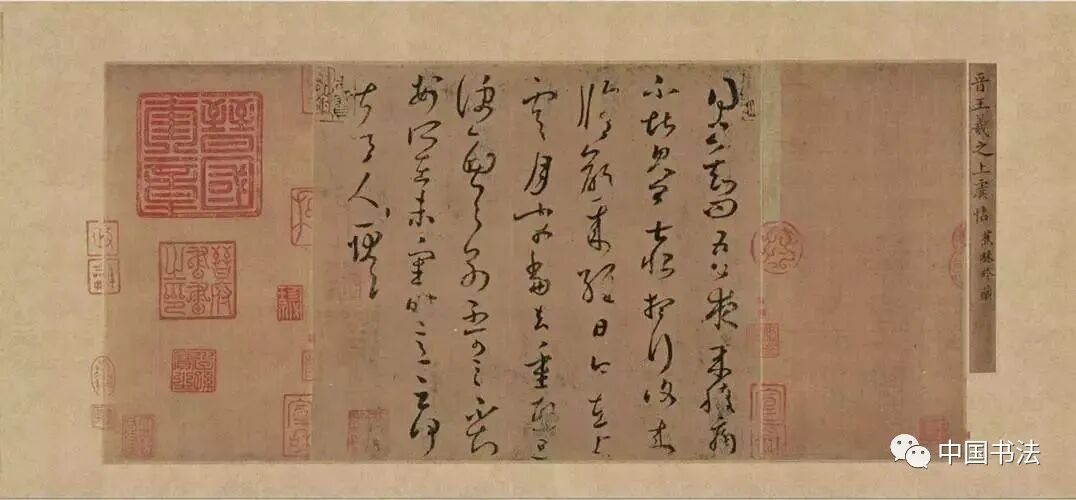 晉王羲之上虞帖 蕉林珍藏
得書知問吾夜來腹痛
不堪見卿甚恨想行復來
脩齡來經日今在上
虞月末當去重熙旦
便西與別不可言不知
安所在未審時意云何
甚令人耿耿
晉國奎章
晉府書畫之印
中国书法